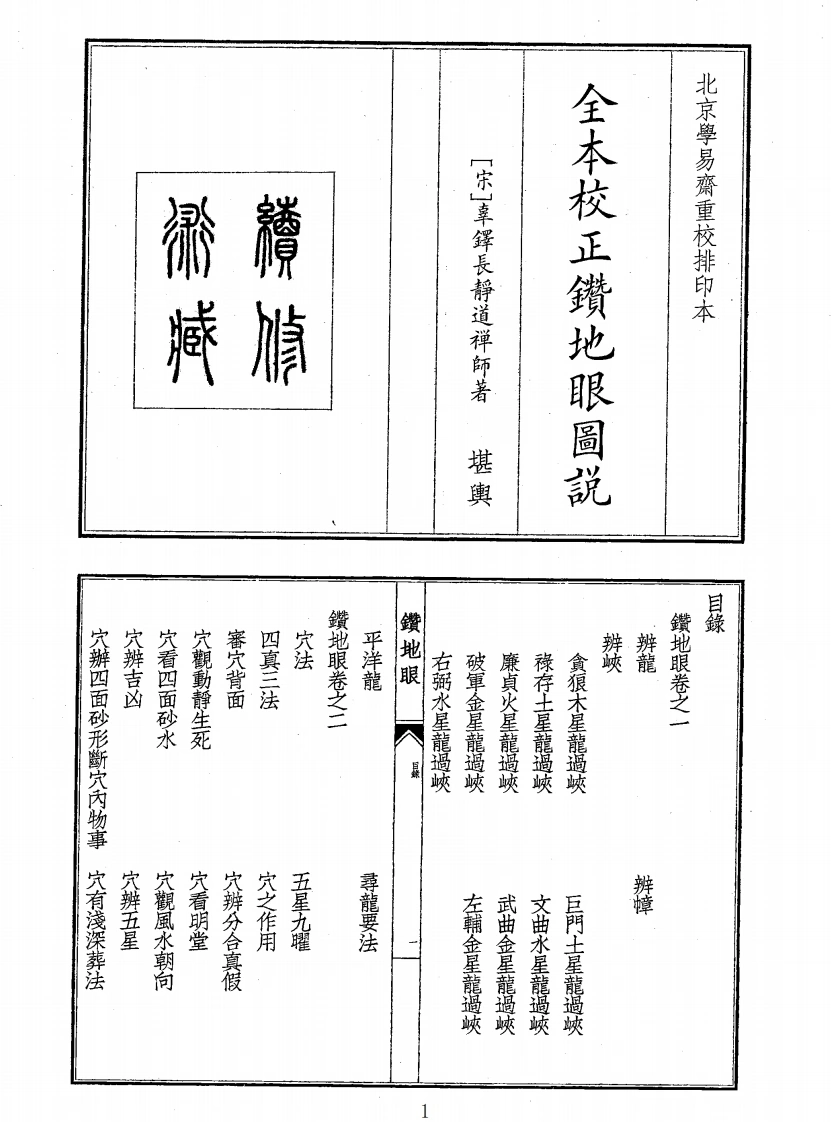 北京學易齋重校排印本
全本校正鑽地眼圖説
［宋］辜鐸長靜道禪師著　堪輿
續修
術藏
目錄
鑽地眼卷之一
辨龍　辨幛
辨峽
貪狼木星龍過峽　巨門土星龍過峽
祿存土星龍過峽　文曲水星龍過峽
廉貞火星龍過峽　武曲金星龍過峽
破軍金星龍過峽　左輔金星龍過峽
右弼水星龍過峽
鑽地眼
目錄
一
平洋龍　尋龍要法
鑽地眼卷之二
穴法　五星九曜
四真三法　穴之作用
審穴背面　穴辨分合真假
穴觀動靜生死　穴看明堂
穴看四面砂水　穴觀風水朝向
穴辨吉凶　穴辨五星
穴辨四面砂形斷穴內物事　穴有淺深葬法
1